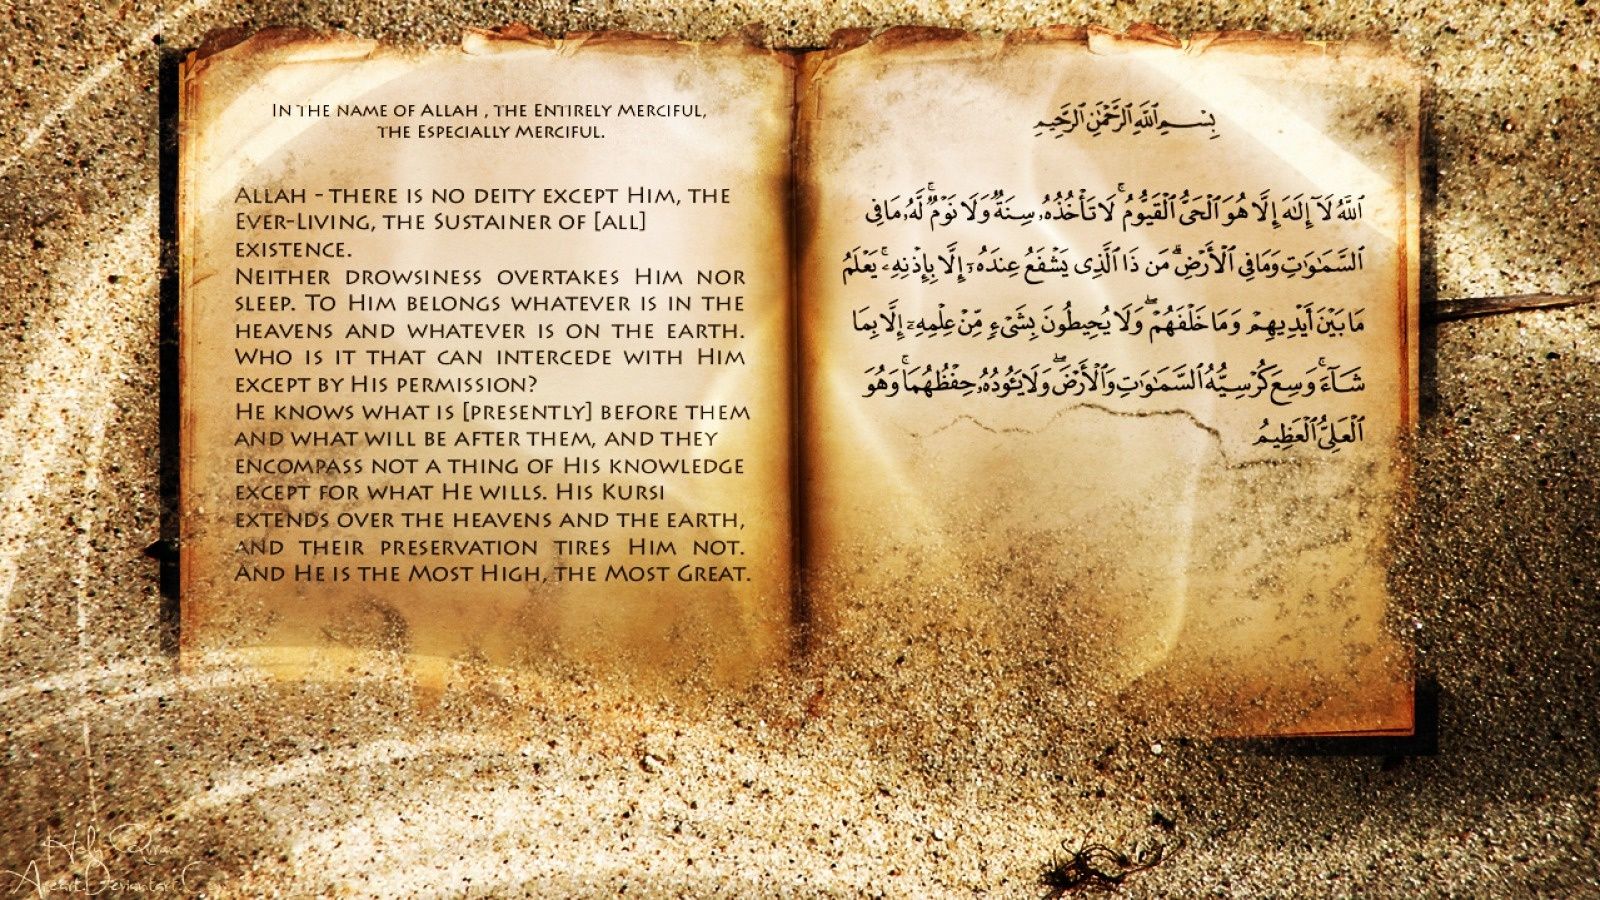 In the name of Allah , the Entirely Merciful,
the Especially Merciful.
Allah - there is no deity except Him, the
Ever-Living, the Sustainer of [all]
existence.
Neither drowsiness overtakes Him nor
sleep. To Him belongs whatever is in the
heavens and whatever is on the earth.
Who is it that can intercede with Him
except by His permission?
He knows what is [presently] before them
and what will be after them, and they
encompass not a thing of His knowledge
except for what He wills. His Kursi
extends over the heavens and the earth,
and their preservation tires Him not.
And He is the Most High, the Most Great.
بِسْمِ ٱللَّهِ ٱلرَّحْمَٰنِ ٱلرَّحِيمِ
ٱللَّهُ لَآ إِلَٰهَ إِلَّا هُوَ ٱلْحَىُّ ٱلْقَيُّومُ ۚ لَا تَأْخُذُهُۥ سِنَةٌ وَلَا نَوْمٌ ۚ لَّهُۥ مَا فِى
ٱلسَّمَٰوَٰتِ وَمَا فِى ٱلْأَرْضِ ۗ مَن ذَا ٱلَّذِى يَشْفَعُ عِندَهُۥٓ إِلَّا بِإِذْنِهِۦ ۚ يَعْلَمُ
مَا بَيْنَ أَيْدِيهِمْ وَمَا خَلْفَهُمْ ۖ وَلَا يُحِيطُونَ بِشَىْءٍ مِّنْ عِلْمِهِۦٓ إِلَّا بِمَا
شَآءَ ۚ وَسِعَ كُرْسِيُّهُ ٱلسَّمَٰوَٰتِ وَٱلْأَرْضَ ۖ وَلَا يَـُٔودُهُۥ حِفْظُهُمَا ۚ وَهُوَ
ٱلْعَلِىُّ ٱلْعَظِيمُ
Holy Quran